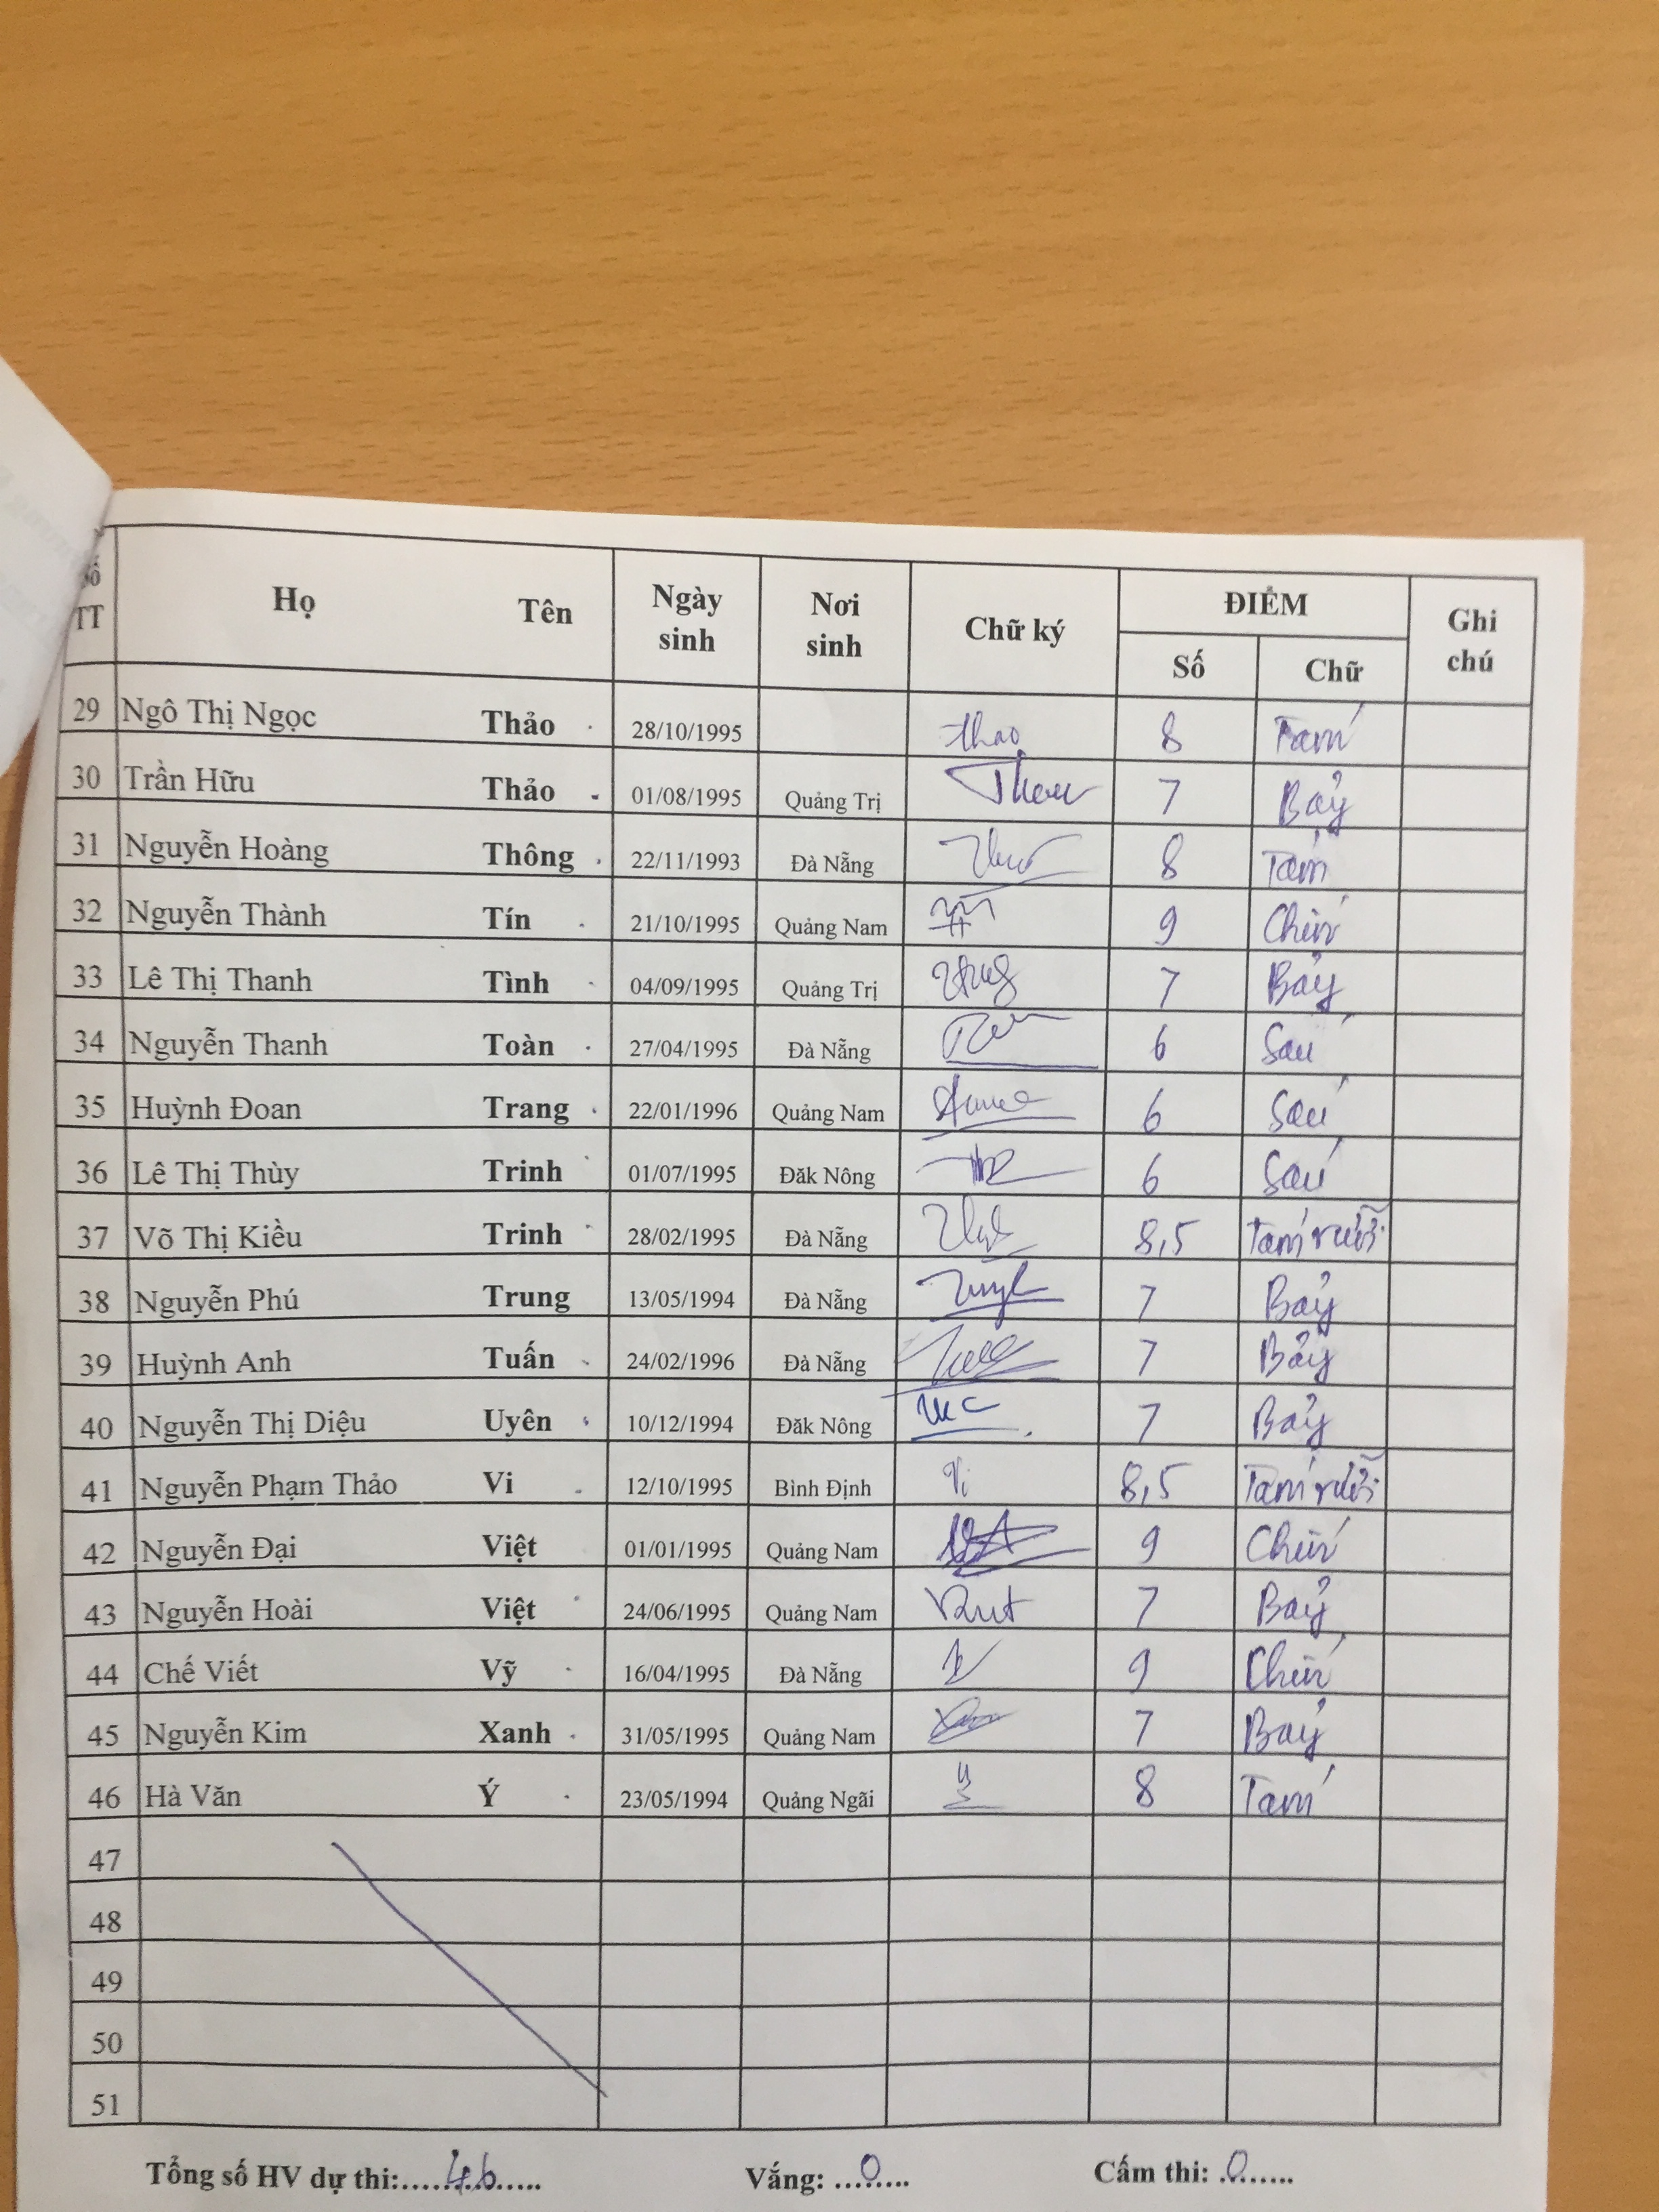 Số TT Họ Tên Ngày sinh Nơi sinh Chữ ký ĐIỂM Ghi chú
Số Chữ
29 Ngô Thị Ngọc Thảo 28/10/1995 thảo 8 Tám
30 Trần Hữu Thảo 01/08/1995 Quảng Trị 7 Bảy
31 Nguyễn Hoàng Thông 22/11/1993 Đà Nẵng 8 Tám
32 Nguyễn Thành Tín 21/10/1995 Quảng Nam 9 Chín
33 Lê Thị Thanh Tình 04/09/1995 Quảng Trị 7 Bảy
34 Nguyễn Thanh Toàn 27/04/1995 Đà Nẵng 6 Sáu
35 Huỳnh Đoan Trang 22/01/1996 Quảng Nam 6 Sáu
36 Lê Thị Thùy Trinh 01/07/1995 Đăk Nông 6 Sáu
37 Võ Thị Kiều Trinh 28/02/1995 Đà Nẵng 8,5 Tám rưỡi
38 Nguyễn Phú Trung 13/05/1994 Đà Nẵng 7 Bảy
39 Huỳnh Anh Tuấn 24/02/1996 Đà Nẵng 7 Bảy
40 Nguyễn Thị Diệu Uyên 10/12/1994 Đăk Nông 7 Bảy
41 Nguyễn Phạm Thảo Vi 12/10/1995 Bình Định Vi 8,5 Tám rưỡi
42 Nguyễn Đại Việt 01/01/1995 Quảng Nam 9 Chín
43 Nguyễn Hoài Việt 24/06/1995 Quảng Nam 7 Bảy
44 Chế Viết Vỹ 16/04/1995 Đà Nẵng 9 Chín
45 Nguyễn Kim Xanh 31/05/1995 Quảng Nam 7 Bảy
46 Hà Văn Ý 23/05/1994 Quảng Ngãi 8 Tám
47
48
49
50
51
Tổng số HV dự thi:.....46..... Vắng: ...0.... Cấm thi: ..0.....